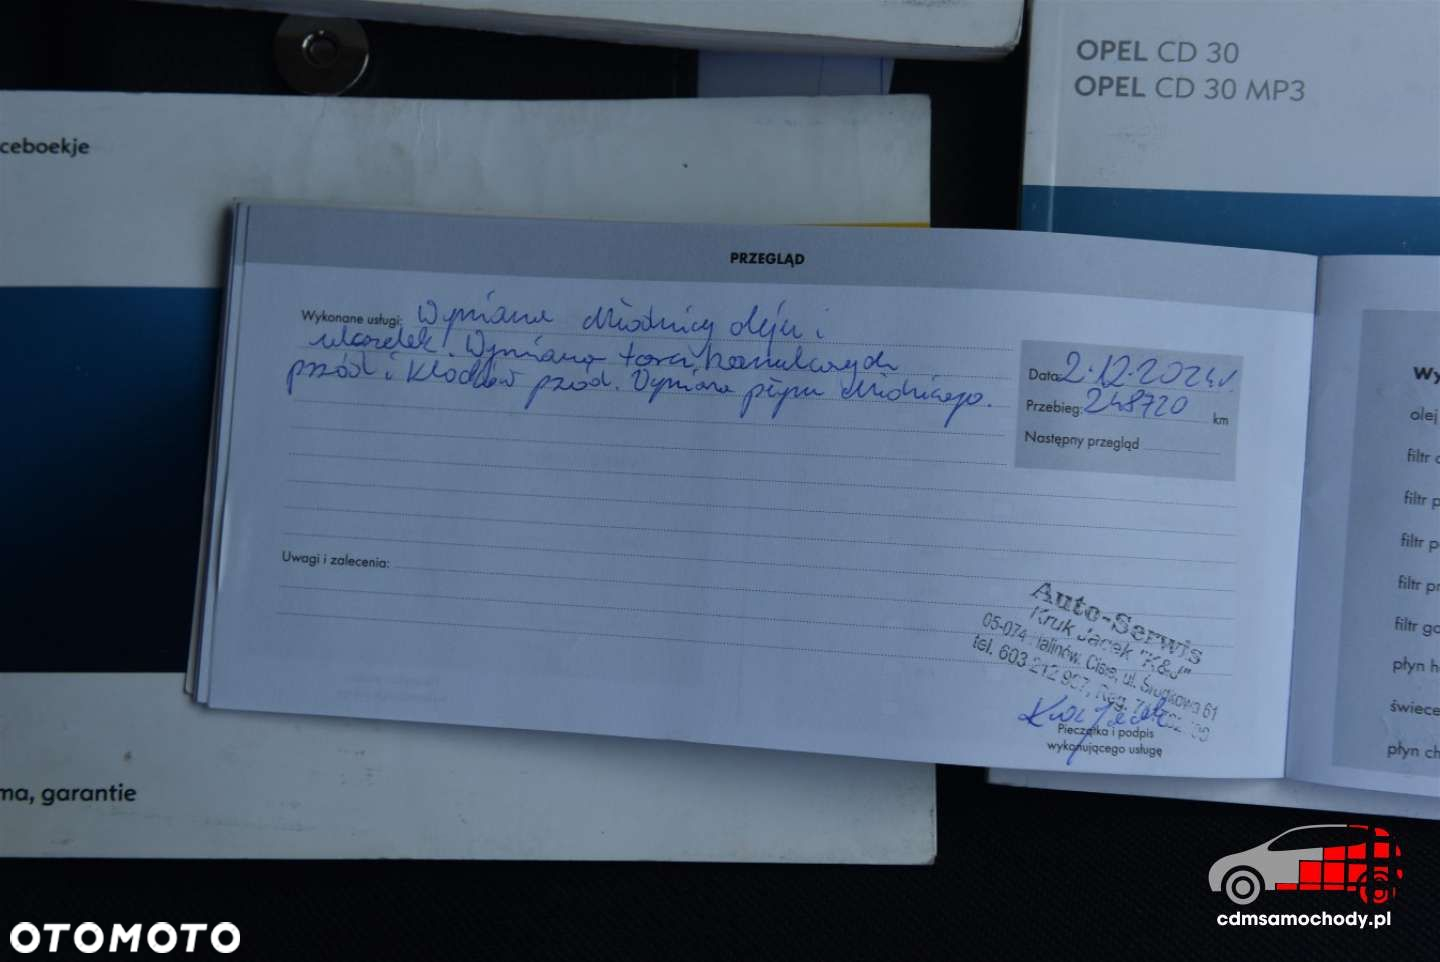 OPEL CD 30
OPEL CD 30 MP3
ceboekje
PRZEGLĄD
Wykonane usługi: Wymiana chłodnicy oleju i
uszczelek. Wymiana tarcz hamulcowych
przód i klocków przód. Wymiana płynu chłodniczego.
Data 2.12.2024r.
Przebieg: 248720 km
Następny przegląd
Uwagi i zalecenia:
Auto-Serwis
Kruk Jacek "K&J"
05-074 Halinów, Cisie, ul.
tel. 603 212 907, Reg.
Pieczątka i podpis
wykonującego usługę
Wy
olej
filtr
filtr p
filtr p
filtr pr
filtr ga
płyn h
świece
płyn ch
ma, garantie
OTOMOTO
cdmsamochody.pl